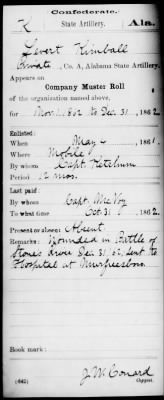 Confederate.
K State Artillery. Ala.
Levert Kimball
Private, Co. A, Alabama State Artillery.
Appears on
Company Muster Roll
of the organization named above,
for Nov 1, 1862 to Dec 31, 1862.
Enlisted:
When May 4, 1861.
Where Mobile
By whom Capt Ketchum
Period 12 mos.
Last paid:
By whom Capt McVoy
To what time Oct 31, 1862.
Present or absent Absent
Remarks: Wounded in Battle of
Stones River Dec 31, 62, sent to
Hospital at Murfreesboro
Book mark:
(642) J. W. Conard
Copyist.